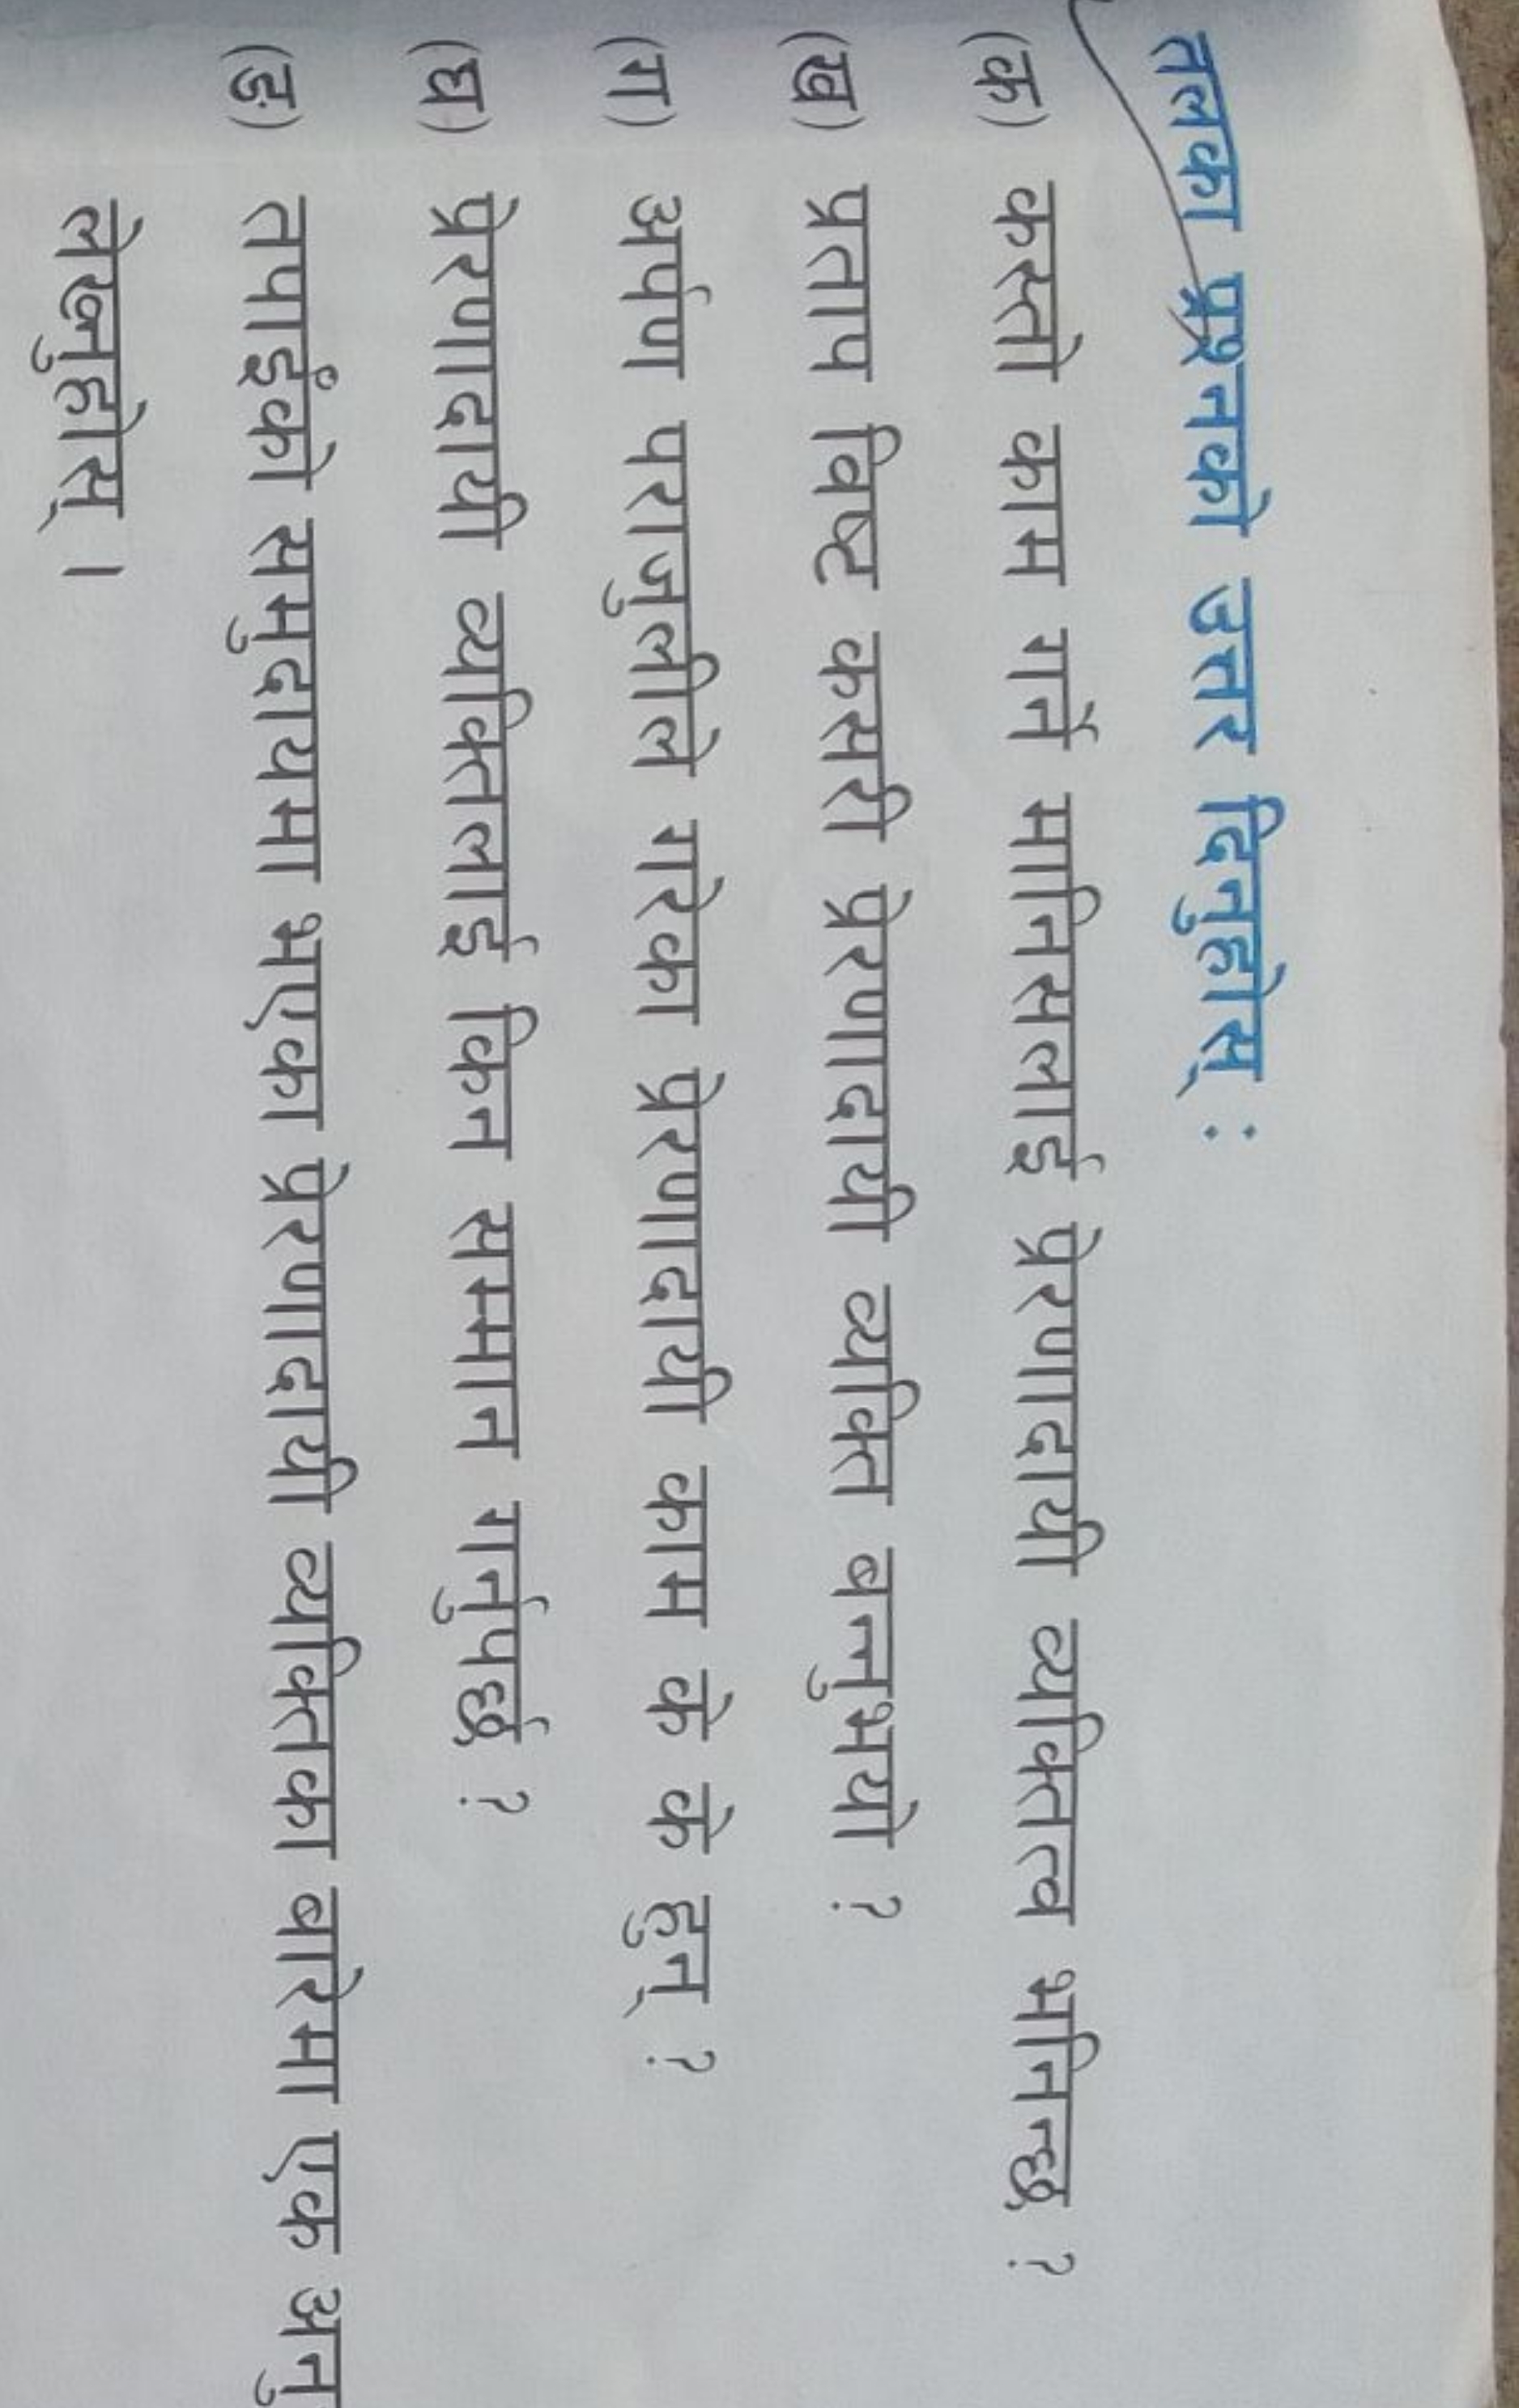 तलका प्रश्नको उत्तर दिनुहोस् :
(क) कस्तो काम गर्ने मानिसलाई प्रेरणादायी व्यक्तित्व भनिन्छ ?
(ख) प्रताप विष्ट कसरी प्रेरणादायी व्यक्ति बन्नुभयो ?
(ग) अर्पण पराजुलीले गरेका प्रेरणादायी काम के के हुन् ?
(घ) प्रेरणादायी व्यक्तिलाई किन सम्मान गर्नुपर्छ ?
(ङ) तपाईंको समुदायमा भएका प्रेरणादायी व्यक्तिका बारेमा एक अनु
लेख्नुहोस् ।